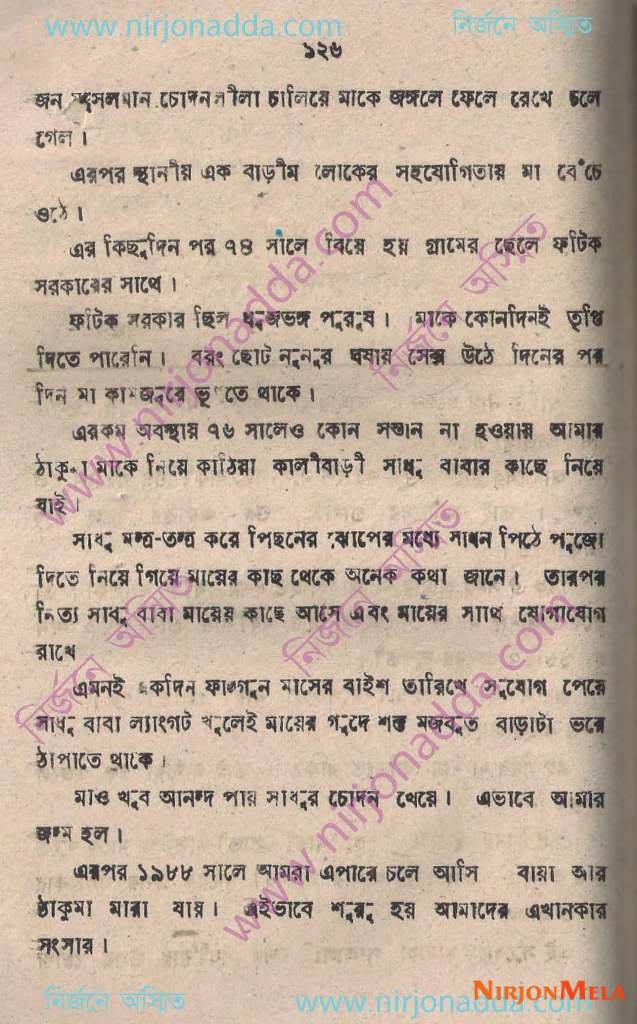 www.nirjonadda.com নির্জনে অস্মিত
১২৬
জন মুসলমান চোদনলীলা চালিয়ে মাকে জঙ্গলে ফেলে রেখে চলে
গেল।
এরপর স্থানীয় এক বাড়ীম লোকের সহযোগিতায় মা বেঁচে
ওঠে।
এর কিছুদিন পর ৭৪ সালে বিয়ে হয় গ্রামের ছেলে ফটিক
সরকারের সাথে।
ফটিক সরকার ছিল ধ্বজভঙ্গ পুরুষ। মাকে কোনদিনই তৃপ্তি
দিতে পারেনি। বরং ছোট নুনুর ঘষায় সেক্স উঠে দিনের পর
দিন মা কামজ্বরে ভুগতে থাকে।
এরকম অবস্থায় ৭৬ সালেও কোন সন্তান না হওয়ায় আমার
ঠাকুমা মাকে নিয়ে কাঠিয়া কালীবাড়ী সাধু বাবার কাছে নিয়ে
যাই।
সাধু মন্ত্র-তন্ত্র করে পিছনের ঝোপের মধ্যে সাধন পিঠে পুজো
দিতে নিয়ে গিয়ে মায়ের কাছ থেকে অনেক কথা জানে। তারপর
নিত্য সাধু বাবা মায়ের কাছে আসে এবং মায়ের সাথে যোগাযোগ
রাখে
এমনই একদিন ফাল্গুন মাসের বাইশ তারিখে সুযোগ পেয়ে
সাধু বাবা ল্যাংগট খুলেই মায়ের গুদে শক্ত মজবুত বাড়াটা ভরে
ঠাপাতে থাকে।
মাও খুব আনন্দ পায় সাধুর চোদন খেয়ে। এভাবে আমার
জন্ম হল।
এরপর ১৯৮৮ সালে আমরা এপারে চলে আসি বাবা আর
ঠাকুমা মারা যায়। এইভাবে শুরু হয় আমাদের এখানকার
সংসার।
www.nirjonadda.com
নির্জনে অস্মিত
www.nirjonadda.com
নির্জনে অস্মিত
নির্জনে অস্মিত
নির্জনে অস্মিত www.nirjonadda.com
NIRJONMELA